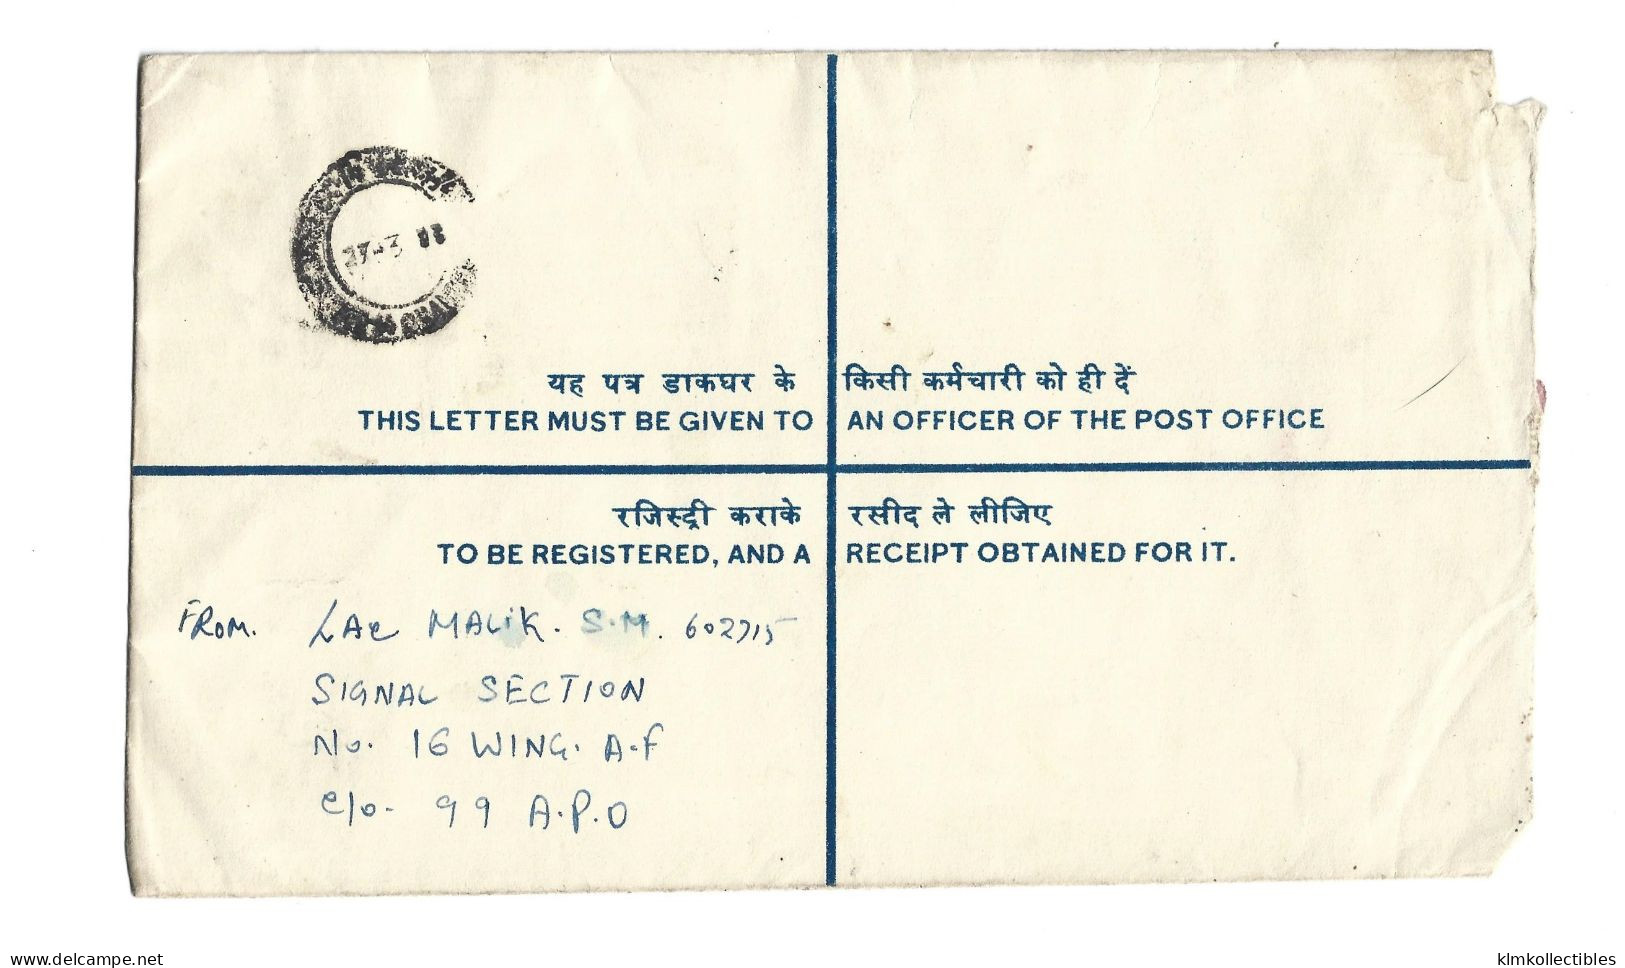 27-3
यह पत्र डाकघर के किसी कर्मचारी को ही दें
THIS LETTER MUST BE GIVEN TO AN OFFICER OF THE POST OFFICE
रजिस्ट्री कराके रसीद ले लीजिए
TO BE REGISTERED, AND A RECEIPT OBTAINED FOR IT.
FROM. LAC MALIK. S.M. 602715
SIGNAL SECTION
No. 16 WING. A.F
c/o. 99 A.P.O
delcampe.net
klmkollectibles